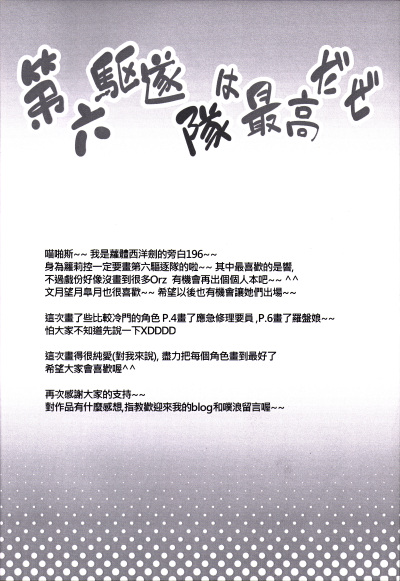 第六駆逐隊は最高だぜ
喵啪斯~~ 我是蘿體西洋劍的旁白196~~
身為籮莉控一定要畫第六驅逐隊的啦~~ 其中最喜歡的是響,
不過戲份好像沒畫到很多Orz 有機會再出個個人本吧~~ ^^
文月望月皐月也很喜歡~~ 希望以後也有機會讓她們出場~~
這次畫了些比較冷門的角色 P.4畫了應急修理要員 ,P.6畫了羅盤娘~~
怕大家不知道先說一下XDDDD
這次畫得很純愛(對我來說), 盡力把每個角色畫到最好了
希望大家會喜歡喔^^
再次感謝大家的支持~~
對作品有什麼感想,指教歡迎來我的blog和噗浪留言喔~~